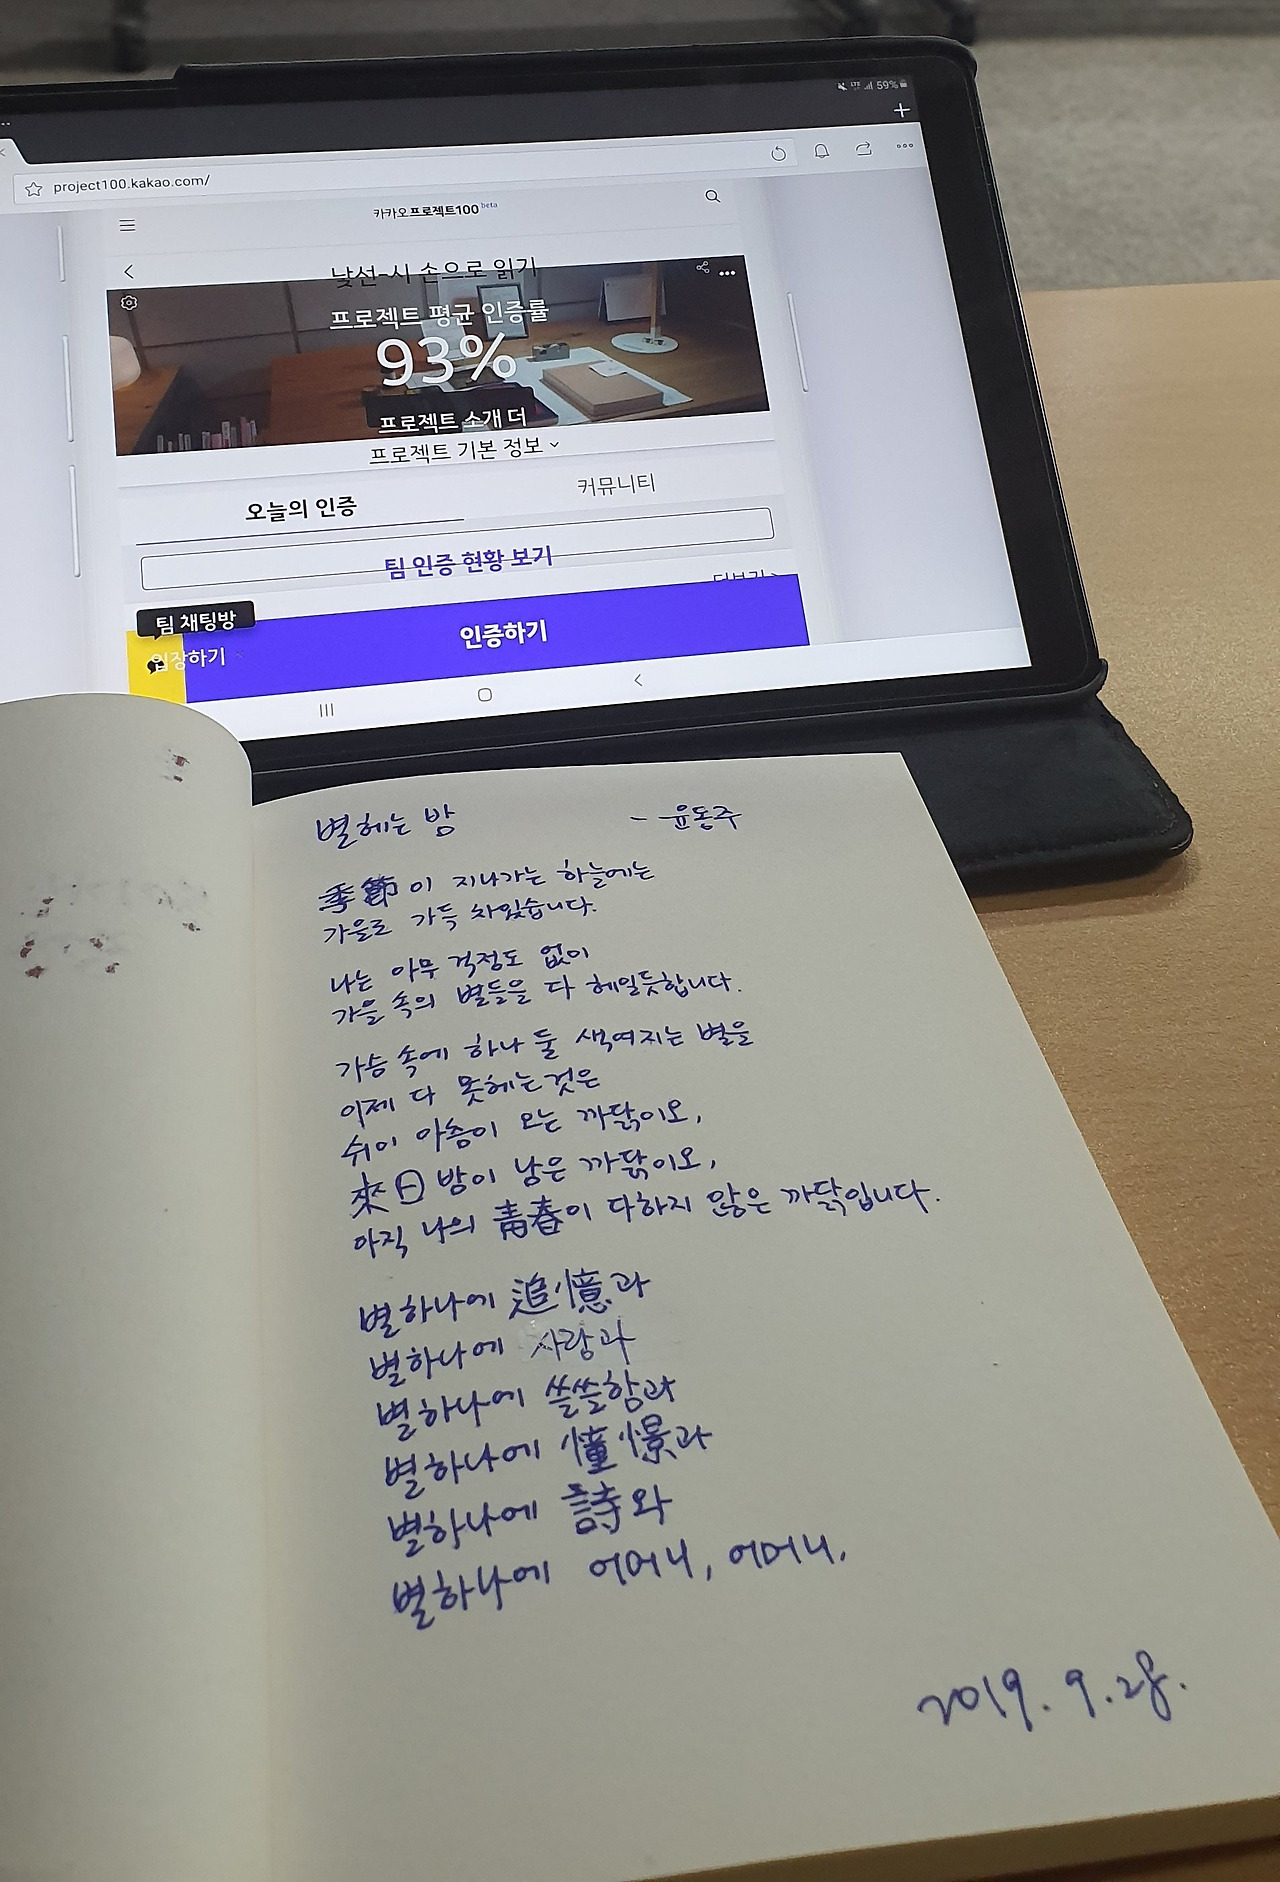 LTE 59%
project100.kakao.com/
카카오프로젝트100 beta
낯선-시 손으로 읽기
프로젝트 평균 인증률
93%
프로젝트 소개 더
프로젝트 기본 정보
오늘의 인증
커뮤니티
팀 인증 현황 보기
더보기 >
팀 채팅방
입장하기
인증하기
별헤는 밤 - 윤동주
季節이 지나가는 하늘에는
가을로 가득 차있습니다.
나는 아무 걱정도 없이
가을 속의 별들을 다 헤일듯합니다.
가슴 속에 하나 둘 색여지는 별을
이제 다 못헤는것은
쉬이 아츰이 오는 까닭이오,
來日 밤이 남은 까닭이오,
아직 나의 青春이 다하지 않은 까닭입니다.
별하나에 追憶과
별하나에 사랑과
별하나에 쓸쓸함과
별하나에 憧憬과
별하나에 詩와
별하나에 어머니, 어머니,
2019. 9. 28.